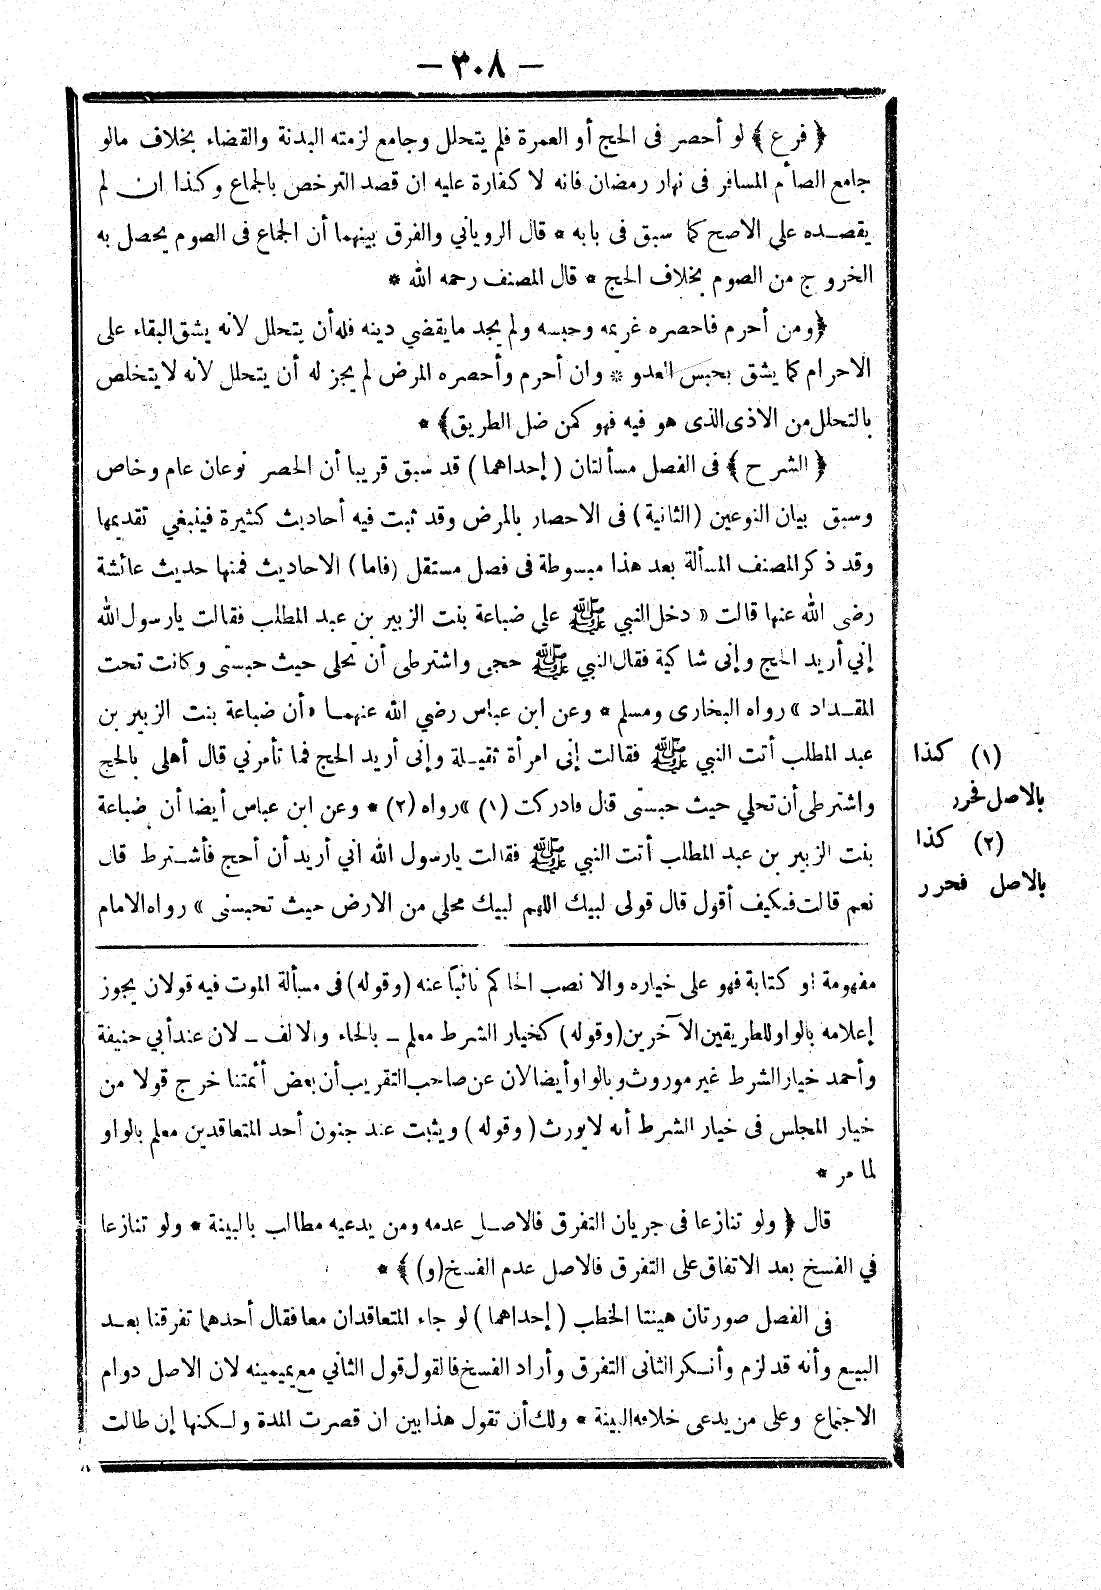 — ٣٠٨ —
﴿ فرع ﴾ لو أحصر فى الحج أو العمرة فلم يتحلل وجامع لزمته البدنة والقضاء بخلاف مالو
جامع الصائم المسافر فى نهار رمضان فانه لا كفارة عليه ان قصد الترخص بالجماع وكذا ان لم
يقصده على الاصح كما سبق فى بابه * قال الرويانى والفرق بينهما أن الجماع فى الصوم يحصل به
الخروج من الصوم بخلاف الحج * قال المصنف رحمه الله *
﴿ومن أحرم فاحصره غريمه وحبسه ولم يجد مايقضي دينه فله أن يتحلل لانه يشق البقاء على
الاحرام كما يشق بحبس العدو * وان أحرم وأحصره المرض لم يجز له أن يتحلل لانه لا يتخلص
بالتحلل من الاذى الذى هو فيه فهو كمن ضل الطريق﴾ *
﴿ الشرح ﴾ فى الفصل مسألتان ( إحداهما ) قد سبق قريبا أن الحصر نوعان عام وخاص
وسبق بيان النوعين (الثانية) فى الاحصار بالمرض وقد ثبت فيه أحاديث كثيرة فينبغي تقديمها
وقد ذكر المصنف المسألة بعد هذا مبسوطة فى فصل مستقل (فاما) الاحاديث فمنها حديث عائشة
رضى الله عنها قالت « دخل النبي ﷺ على ضباعة بنت الزبير بن عبد المطلب فقالت يارسول الله
إني أريد الحج وإنى شاكية فقال النبي ﷺ حجى واشترطى أن تحلى حيث حبستى وكانت تحت
المقداد » رواه البخارى ومسلم * وعن ابن عباس رضي الله عنهما «أن ضباعة بنت الزبير بن
عبد المطلب أتت النبي ﷺ فقالت إنى امرأة ثقيلة وإنى أريد الحج فما تأمرني قال أهلى بالحج
واشترطى أن تحلي حيث حبستى قال فادركت (١) » رواه (٢) * وعن ابن عباس أيضا أن ضباعة
بنت الزبير بن عبد المطلب أتت النبي ﷺ فقالت يارسول الله اني أريد أن أحج فأشترط قال
نعم قالت فكيف أقول قال قولى لبيك اللهم لبيك محلي من الارض حيث تحبسنى » رواه الامام
(١) كذا
بالاصل فحرر
(٢) كذا
بالاصل فحرر
مفهومة او كتابة فهو على خياره والا نصب الحاكم نائبا عنه (وقوله) فى مسألة الموت فيه قولان يجوز
إعلامه بالواو للطريقين الآخرين (وقوله) كخيار الشرط معلم ـ بالحاء والالف ـ لان عند أبي حنيفة
وأحمد خيار الشرط غير موروث وبالواو أيضا لان عن صاحب التقريب أن بعض أئمتنا خرج قولا من
خيار المجلس فى خيار الشرط أنه لا يورث ( وقوله ) ويثبت عند جنون أحد المتعاقدين معلم بالواو
لما مر *
قال ﴿ ولو تنازعا فى جريان التفرق فالاصل عدمه ومن يدعيه مطالب بالبينة * ولو تنازعا
في الفسخ بعد الاتفاق على التفرق فالاصل عدم الفسخ (و) ﴾ *
فى الفصل صورتان هينتا الخطب ( إحداهما ) لو جاء المتعاقدان معا فقال أحدهما تفرقنا بعد
البيع وأنه قد لزم وأنكر الثانى التفرق وأراد الفسخ فالقول قول الثاني مع يمينه لان الاصل دوام
الاجتماع وعلى من يدعى خلافه البينة * ولك أن تقول هذا بين ان قصرت المدة ولكنها إن طالت